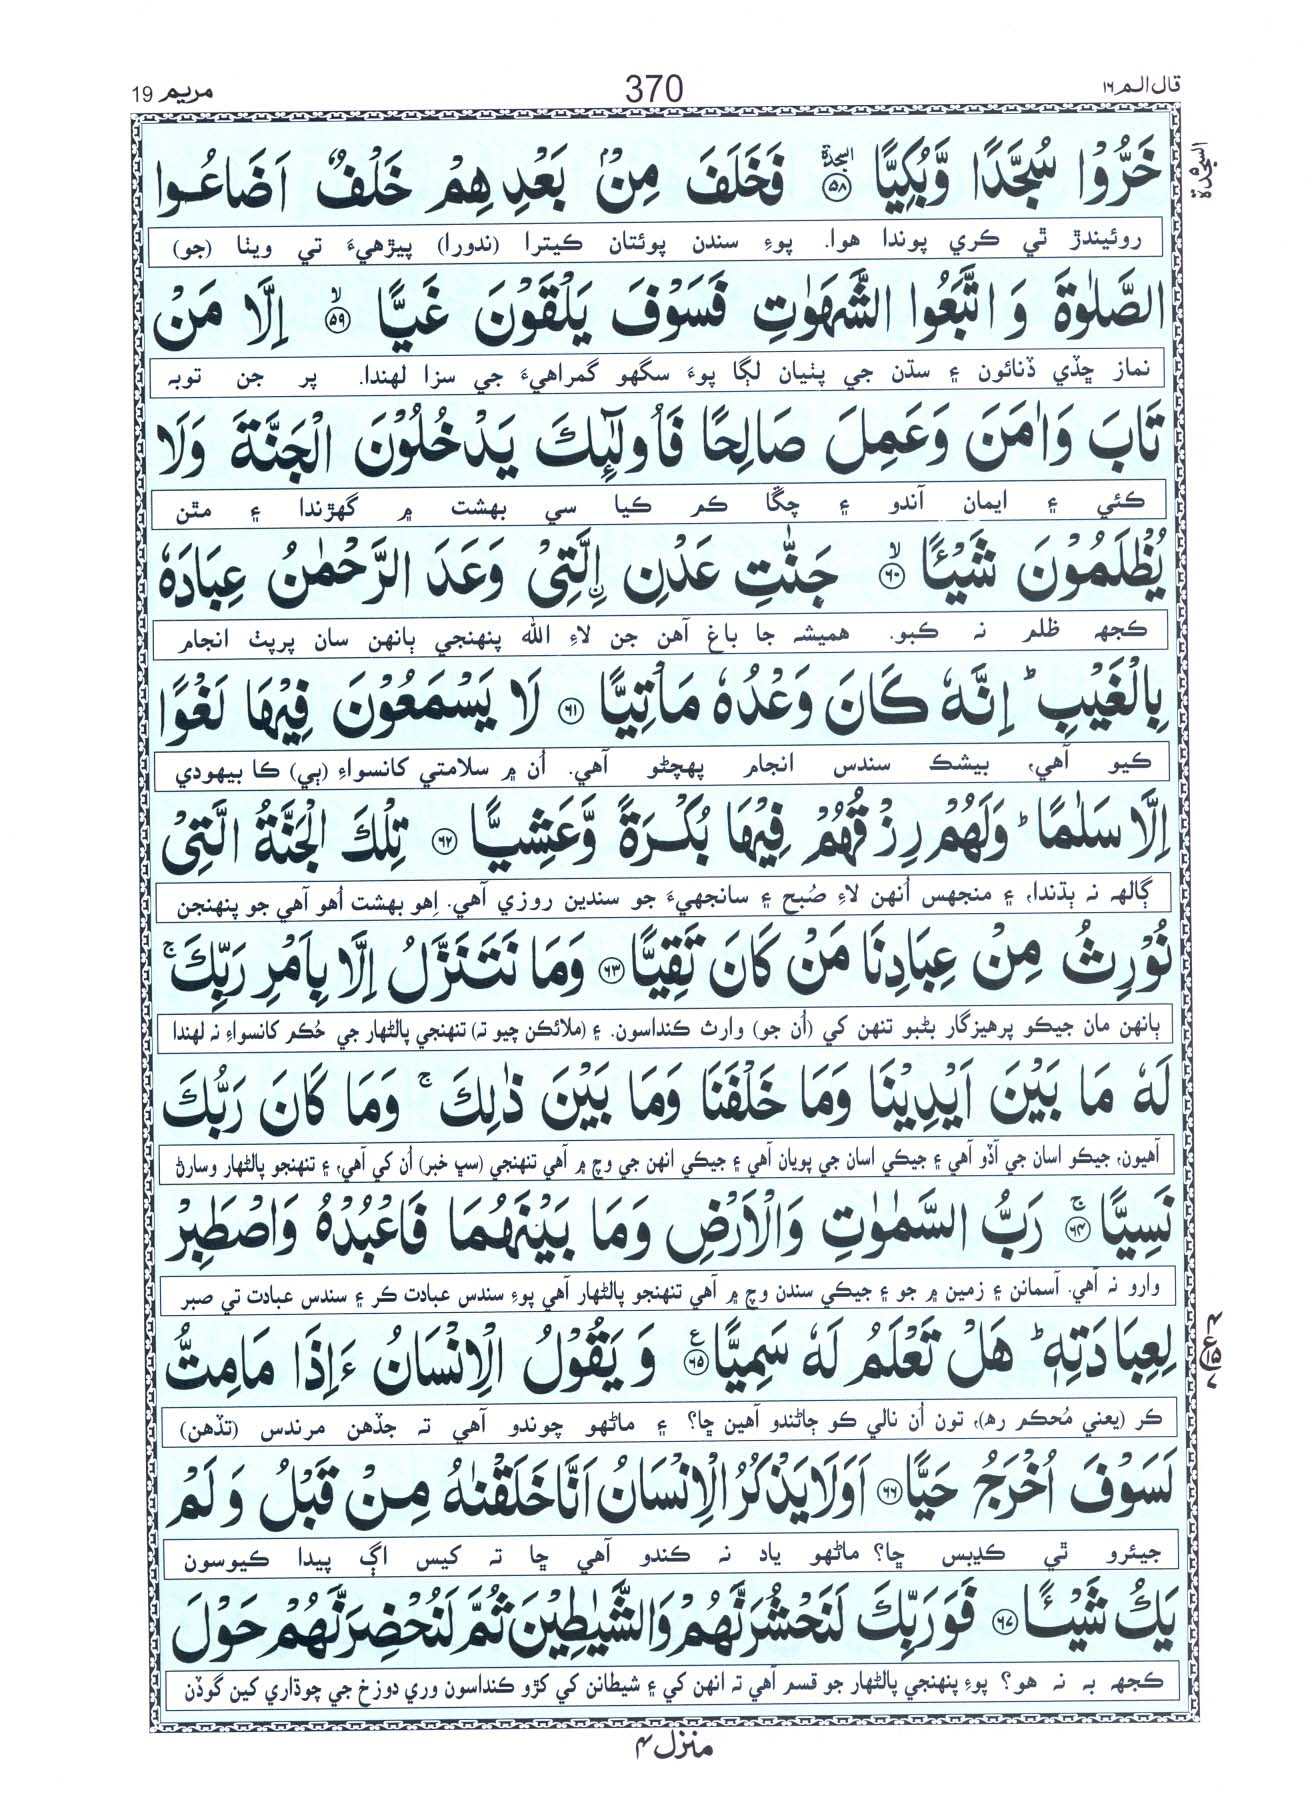 قال الم ١٦
370
مريم 19
خَرُّوْا سُجَّدًا وَّبُكِيًّا ۩ ﴿۵۸﴾ فَخَلَفَ مِنْۢ بَعْدِهِمْ خَلْفٌ اَضَاعُوا
السجدة ۵
روئيندڙ ٿي ڪري پوندا هوا. پوءِ سندن پوئتان ڪيترا (ندورا) پيڙهيءَ تي ويٺا (جو)
الصَّلٰوةَ وَاتَّبَعُوا الشَّهَوٰتِ فَسَوْفَ يَلْقَوْنَ غَيًّا ۙ ﴿۵۹﴾ اِلَّا مَنْ
نماز ڇڏي ڏنائون ۽ سڌن جي پٺيان لڳا پوءَ سگهو گمراهيءَ جي سزا لهندا. پر جن توبہ
تَابَ وَاٰمَنَ وَعَمِلَ صَالِحًا فَاُولٰٓئِكَ يَدْخُلُوْنَ الْجَنَّةَ وَلَا
ڪئي ۽ ايمان آندو ۽ چڱا ڪم ڪيا سي بهشت ۾ گهڙندا ۽ مٿن
يُظْلَمُوْنَ شَيْـًٔا ۙ ﴿۶۰﴾ جَنّٰتِ عَدْنِ ۨ الَّتِىْ وَعَدَ الرَّحْمٰنُ عِبَادَهٗ
ڪجهہ ظلم نہ ڪبو. هميشہ جا باغ آهن جن لاءِ الله پنهنجي ٻانهن سان پرپٺ انجام
بِالْغَيْبِ ؕ اِنَّهٗ كَانَ وَعْدُهٗ مَاْتِيًّا ﴿۶۱﴾ لَا يَسْمَعُوْنَ فِيْهَا لَغْوًا
ڪيو آهي، بيشڪ سندس انجام پهچڻو آهي. اُن ۾ سلامتي کانسواءِ (ٻي) ڪا بيهودي
اِلَّا سَلٰمًا ؕ وَلَهُمْ رِزْقُهُمْ فِيْهَا بُكْرَةً وَّعَشِيًّا ﴿۶۲﴾ تِلْكَ الْجَنَّةُ الَّتِىْ
ڳالهہ نہ ٻڌندا، ۽ منجهس اُنهن لاءِ صُبح ۽ سانجهيءَ جو سندين روزي آهي. اِهو بهشت اُهو آهي جو پنهنجن
نُوْرِثُ مِنْ عِبَادِنَا مَنْ كَانَ تَقِيًّا ﴿۶۳﴾ وَمَا نَتَنَزَّلُ اِلَّا بِاَمْرِ رَبِّكَ ۚ
ٻانهن مان جيڪو پرهيزگار هُبو تنهن کي (اُن جو) وارث ڪنداسون. ۽ (ملائڪن چيو تہ) تنهنجي پالڻهار جي حُڪم کانسواءِ نہ لهندا
لَهٗ مَا بَيْنَ اَيْدِيْنَا وَمَا خَلْفَنَا وَمَا بَيْنَ ذٰلِكَ ۚ وَمَا كَانَ رَبُّكَ
آهيون، جيڪو اسان جي اڏو آهي ۽ جيڪي اسان جي پويان آهي ۽ جيڪي انهن جي وچ ۾ آهي تنهنجي (سڀ خبر) اُن کي آهي، ۽ تنهنجو پالڻهار وسارڻ
نَسِيًّا ۚ ﴿۶۴﴾ رَبُّ السَّمٰوٰتِ وَالْاَرْضِ وَمَا بَيْنَهُمَا فَاعْبُدْهُ وَاصْطَبِرْ
وارو نہ آهي. آسمانن ۽ زمين ۾ جو ۽ جيڪي سندن وچ ۾ آهي تنهنجو پالڻهار آهي پوءِ سندس عبادت ڪر ۽ سندس عبادت تي صبر
لِعِبَادَتِهٖ ؕ هَلْ تَعْلَمُ لَهٗ سَمِيًّا ﴿۶۵﴾ ع وَيَقُوْلُ الْاِنْسَانُ ءَاِذَا مَا مِتُّ
ڪر (يعني مُحڪم رهہ)، تون اُن نالي ڪو ڄاڻندو آهين ڇا؟ ۽ ماڻهو چوندو آهي تہ جڏهن مرندس (تڏهن)
لَسَوْفَ اُخْرَجُ حَيًّا ﴿۶۶﴾ اَوَلَا يَذْكُرُ الْاِنْسَانُ اَنَّا خَلَقْنٰهُ مِنْ قَبْلُ وَلَمْ
جيئرو ٿي ڪڍبس ڇا؟ ماڻهو ياد نہ ڪندو آهي ڇا تہ کيس اڳ پيدا ڪيوسون
يَكُ شَيْـًٔا ﴿۶۷﴾ فَوَرَبِّكَ لَنَحْشُرَنَّهُمْ وَالشَّيٰطِيْنَ ثُمَّ لَنُحْضِرَنَّهُمْ حَوْلَ
ڪجهہ بہ نہ هو؟ پوءِ پنهنجي پالڻهار جو قسم آهي تہ انهن کي ۽ شيطانن کي ڪڙو ڪنداسون وري دوزخ جي چوڌاري کين گوڏن
منزل ۴